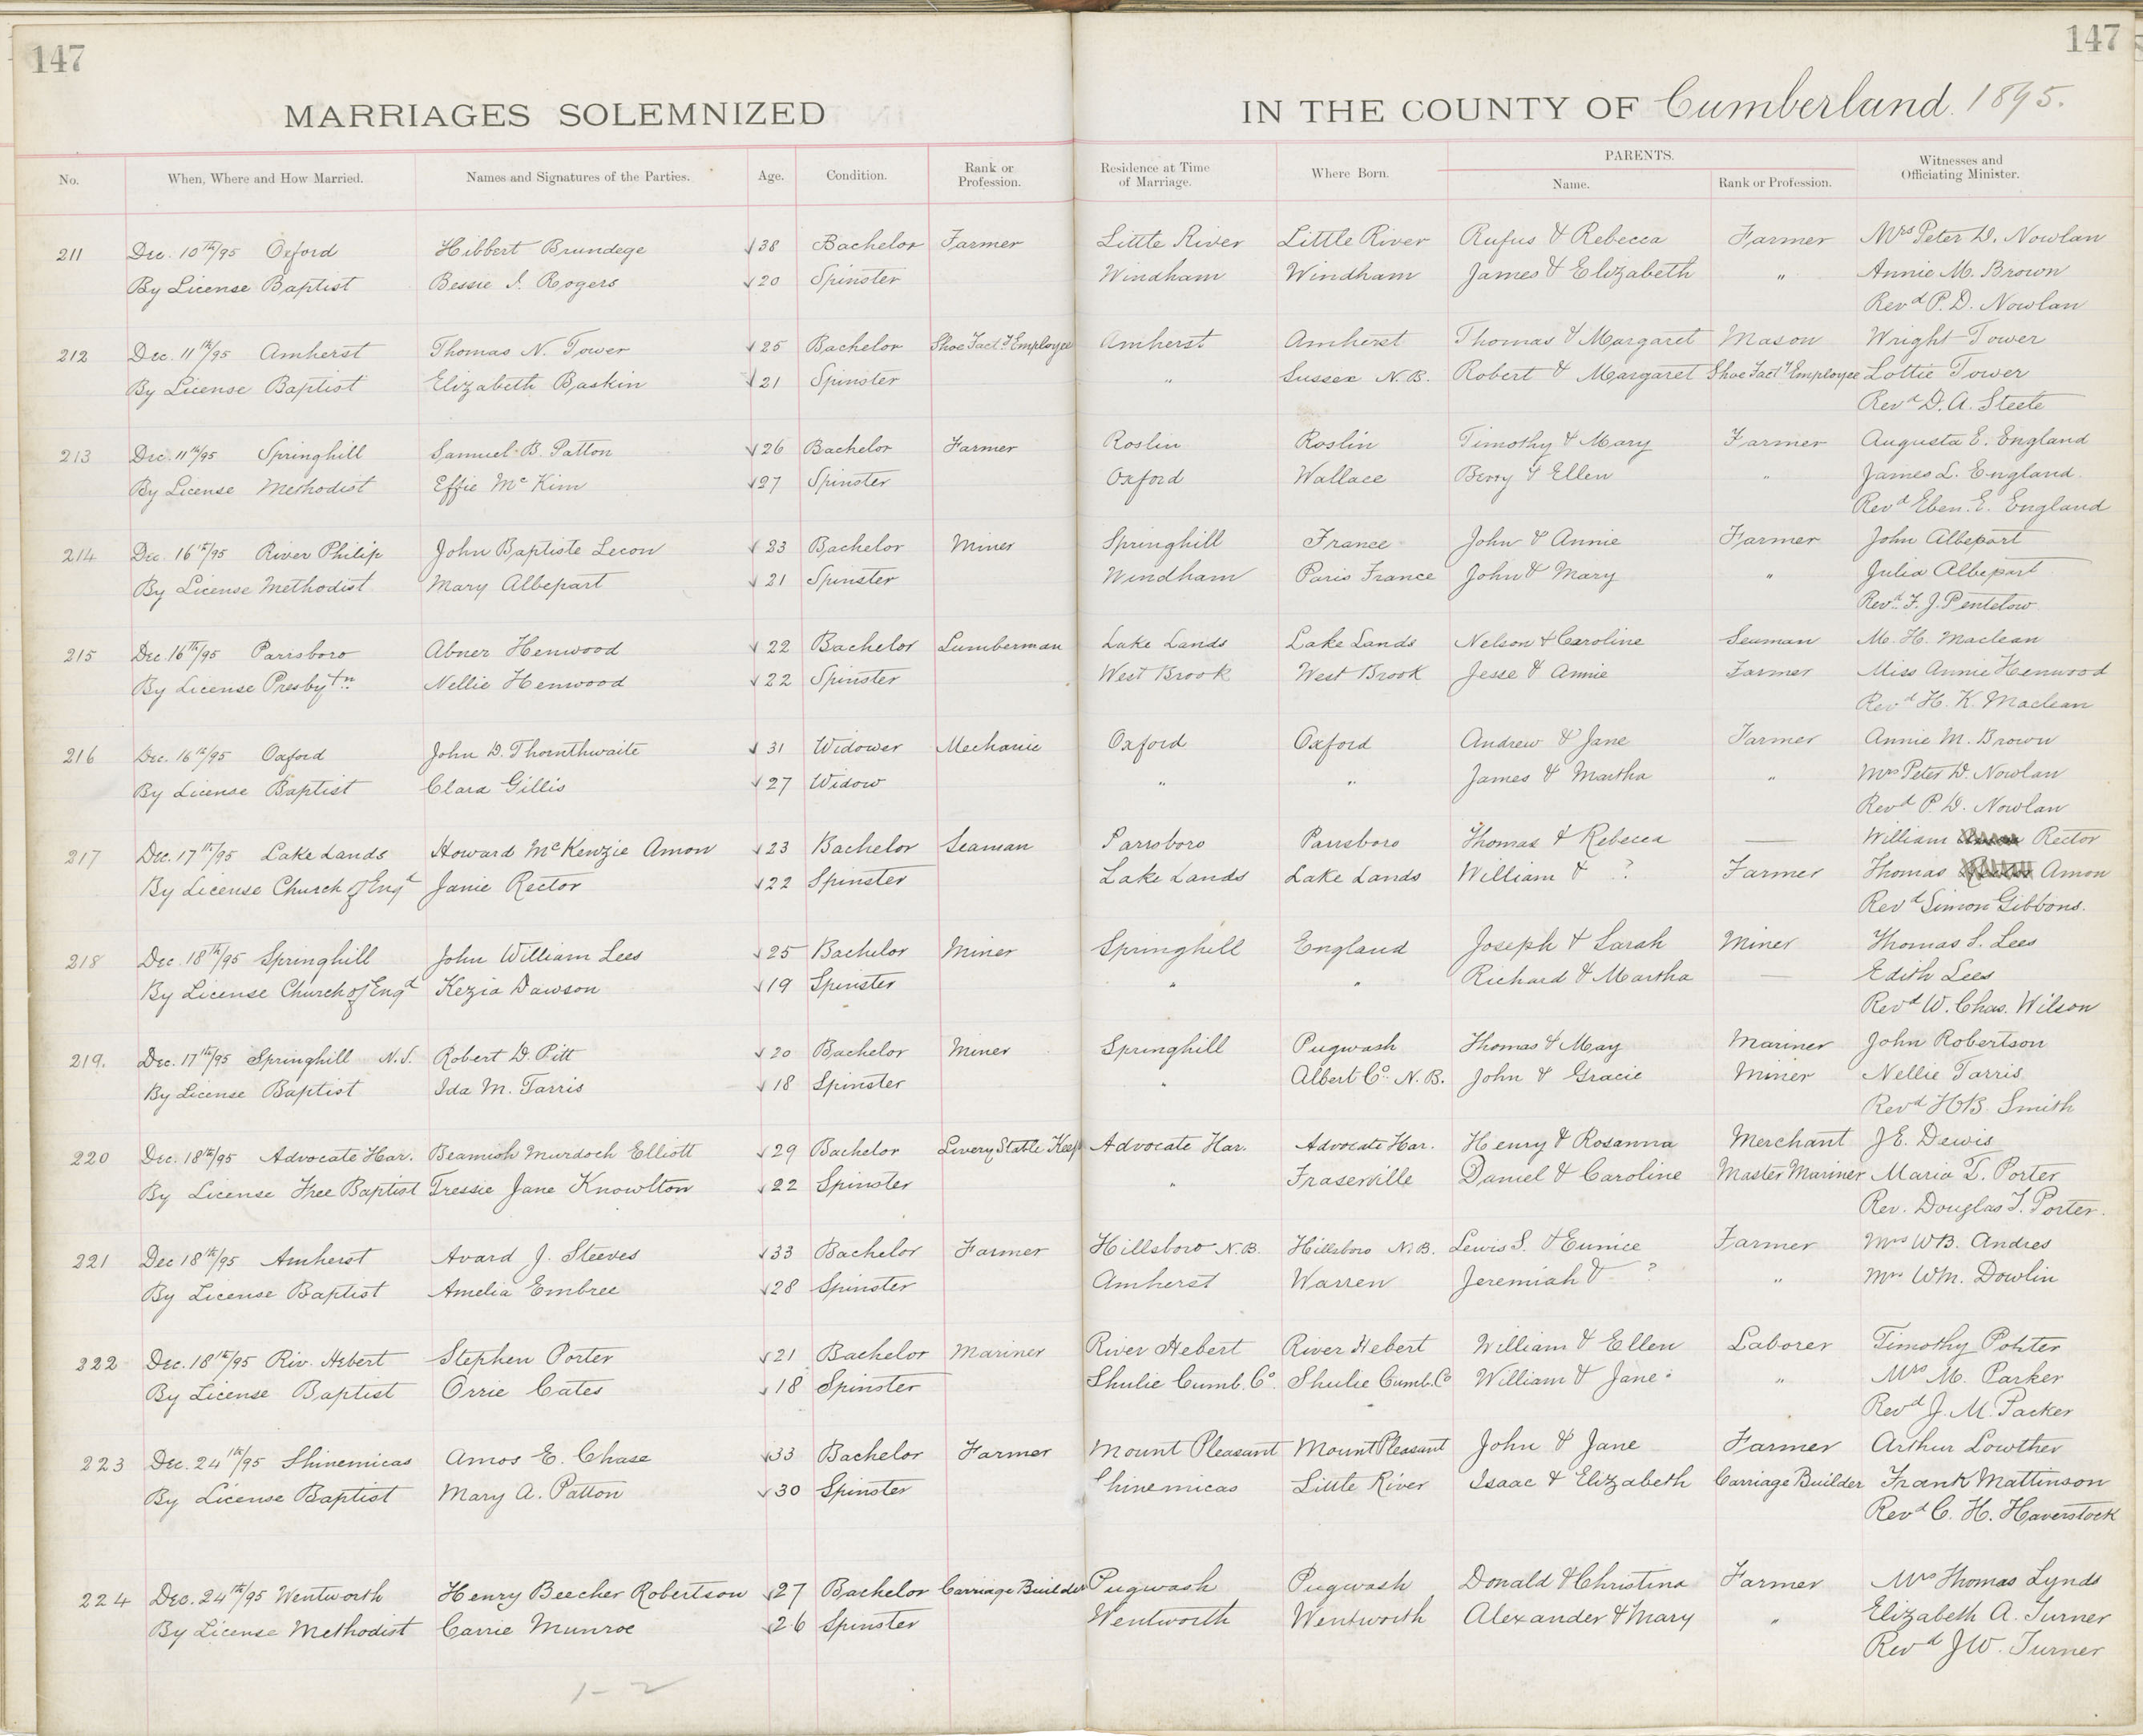 147
147
MARRIAGES SOLEMNIZED IN THE COUNTY OF Cumberland. 1895.
No. When, Where and How Married. Names and Signatures of the Parties. Age. Condition. Rank or Profession. Residence at Time of Marriage. Where Born. PARENTS. Name. Rank or Profession. Witnesses and Officiating Minister.
211 Dec. 10th/95 Oxford Hibbert Brundege 38 Bachelor Farmer Little River Little River Rufus & Rebecca Farmer Mrs Peter D. Nowlan
By License Baptist Bessie I. Rogers 20 Spinster Windham Windham James & Elizabeth " Annie M. Brown
Revd P. D. Nowlan
212 Dec. 11th/95 Amherst Thomas N. Tower 25 Bachelor Shoe Facty Employee Amherst Amherst Thomas & Margaret Mason Wright Tower
By License Baptist Elizabeth Baskin 21 Spinster " Sussex N.B. Robert & Margaret Shoe Facty Employee Lottie Tower
Revd D. A. Steele
213 Dec. 11th/95 Springhill Samuel B. Patton 26 Bachelor Farmer Roslin Roslin Timothy & Mary Farmer Augusta E. England
By License Methodist Effie McKim 27 Spinster Oxford Wallace & Ellen " James L. England.
Revd Eben. E. England
214 Dec. 16th/95 River Philip John Baptiste Lecon 23 Bachelor Miner Springhill France John & Annie Farmer John Albepart
By License Methodist Mary Albepart 21 Spinster Windham Paris France John & Mary " Julia Albepart
Revd. F. J. Pentelow
215 Dec. 16th/95 Parrsboro Abner Henwood 22 Bachelor Lumberman Lake Lands Lake Lands Nelson & Caroline Seaman M. H. Maclean
By License Presbytn Nellie Henwood 22 Spinster West Brook West Brook Jesse & Annie Farmer Miss Annie Henwood
Revd H. K. Maclean
216 Dec. 16th/95 Oxford John D. Thornthwaite 31 Widower Mechanic Oxford Oxford Andrew & Jane Farmer Annie M. Brown
By License Baptist Clara Gillis 27 Widow " " James & Martha " Mrs Peter D. Nowlan
Revd P. D. Nowlan
217 Dec. 17th/95 Lake Lands Howard McKenzie Amon 23 Bachelor Seaman Parrsboro Parrsboro Thomas & Rebecca — William Rector
By License Church of Engd Janie Rector 22 Spinster Lake Lands Lake Lands William & ? Farmer Thomas Amon
Revd Simon Gibbons.
218 Dec. 18th/95 Springhill John William Lees 25 Bachelor Miner Springhill England Joseph & Sarah Miner Thomas S. Lees
By License Church of Engd Kezia Dawson 19 Spinster " " Richard & Martha — Edith Lees
Revd W. Chas. Wilson
219. Dec. 17th/95 Springhill N.S. Robert D. Pitt 20 Bachelor Miner Springhill Pugwash Thomas & May Mariner John Robertson
By License Baptist Ida M. Tarris 18 Spinster " Albert Co. N.B. John & Gracie Miner Nellie Tarris
Revd H.B. Smith
220 Dec. 18th/95 Advocate Har. Beamish Murdoch Elliott 29 Bachelor Livery Stable Keep Advocate Har. Advocate Har. Henry & Rosanna Merchant J.E. Dewis
By License Free Baptist Tressie Jane Knowlton 22 Spinster " Fraserville Daniel & Caroline Master Mariner Maria T. Porter
Rev. Douglas T. Porter.
221 Dec 18th/95 Amherst Avard J. Steeves 33 Bachelor Farmer Hillsboro N.B. Hillsboro N.B. Lewis S. & Eunice Farmer Mrs WB. Andres
By License Baptist Amelia Embree 28 Spinster Amherst Warren Jeremiah & ? " Mrs WM. Dowlin
222 Dec. 18th/95 Riv. Hebert Stephen Porter 21 Bachelor Mariner River Hebert River Hebert William & Ellen Laborer Timothy
By License Baptist Orrie Cates 18 Spinster Shulie Cumb. Co. Shulie Cumb. Co William & Jane " Mrs M. Parker
Revd J. M. Parker
223 Dec. 24th/95 Shinemicas Amos E. Chase 33 Bachelor Farmer Mount Pleasant Mount Pleasant John & Jane Farmer Arthur Lowther
By License Baptist Mary A. Patton 30 Spinster Shinemicas Little River Isaac & Elizabeth Carriage Builder Frank Mattinson
Revd C. H. Haverstock
224 Dec. 24th/95 Wentworth Henry Beecher Robertson 27 Bachelor Carriage Builder Pugwash Pugwash Donald & Christina Farmer Mrs Thomas Lynds
By License Methodist Carrie Munroe 26 Spinster Wentworth Wentworth Alexander & Mary " Elizabeth A. Turner
Revd J.W. Turner
1-2